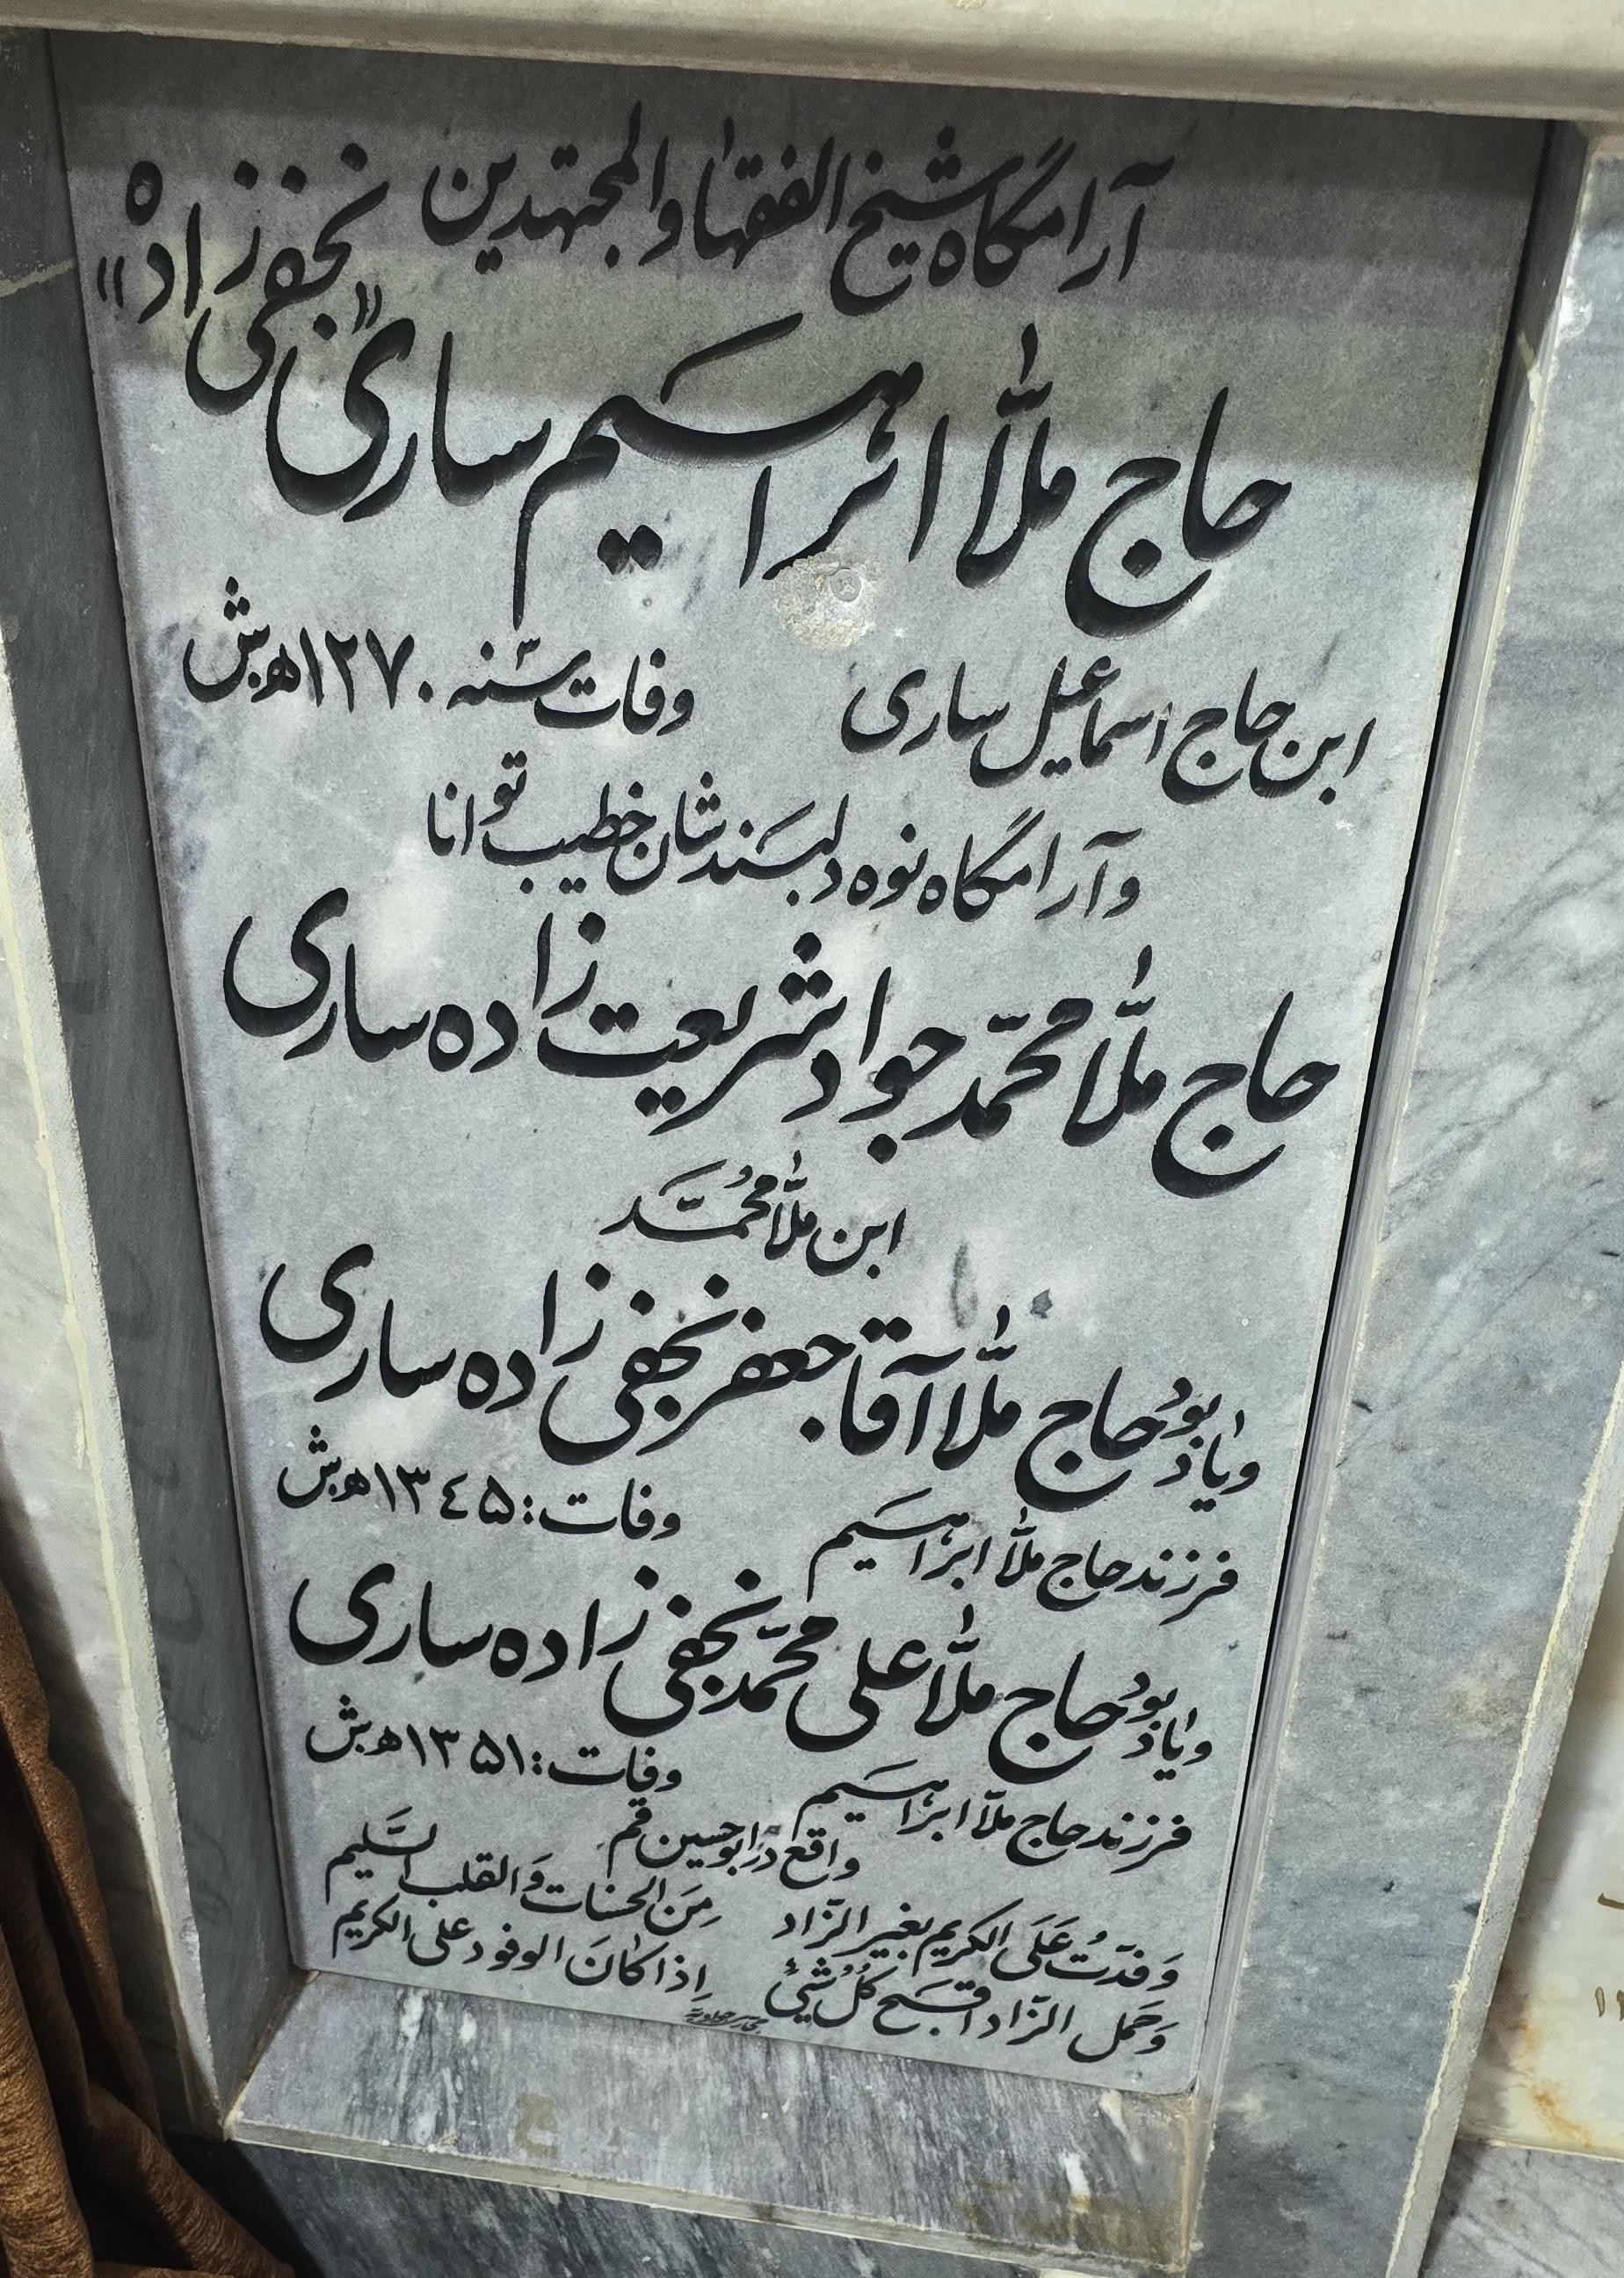 آرامگاه شیخ الفقهاء والمجتهدین
حاج ملّا ابراهیم ساری «نجفی زاده»
ابن حاج اسماعیل ساری وفات سنه ۱۲۷۰ ه.ش
و آرامگاه نوه دلبندشان خطیب توانا
حاج ملّا محمّد جواد شریعت زاده ساری
ابن ملّا محمّد
و یادبود حاج ملّا آقا جعفر نجفی زاده ساری
فرزند حاج ملّا ابراهیم وفات: ۱۳۴۵ ه.ش
و یادبود حاج ملّا علی محمّد نجفی زاده ساری
فرزند حاج ملّا ابراهیم وفات: ۱۳۵۱ ه.ش
واقع در ابوحسین قم
وَفَدتُ عَلَی الکریم بغیر الزّاد مِنَ الحسنات وَالقلب السَّلیم
وَحَمل الزّاد اقبَح کُلُ شَیءٍ اِذا کانَ الوفود علی الکریم